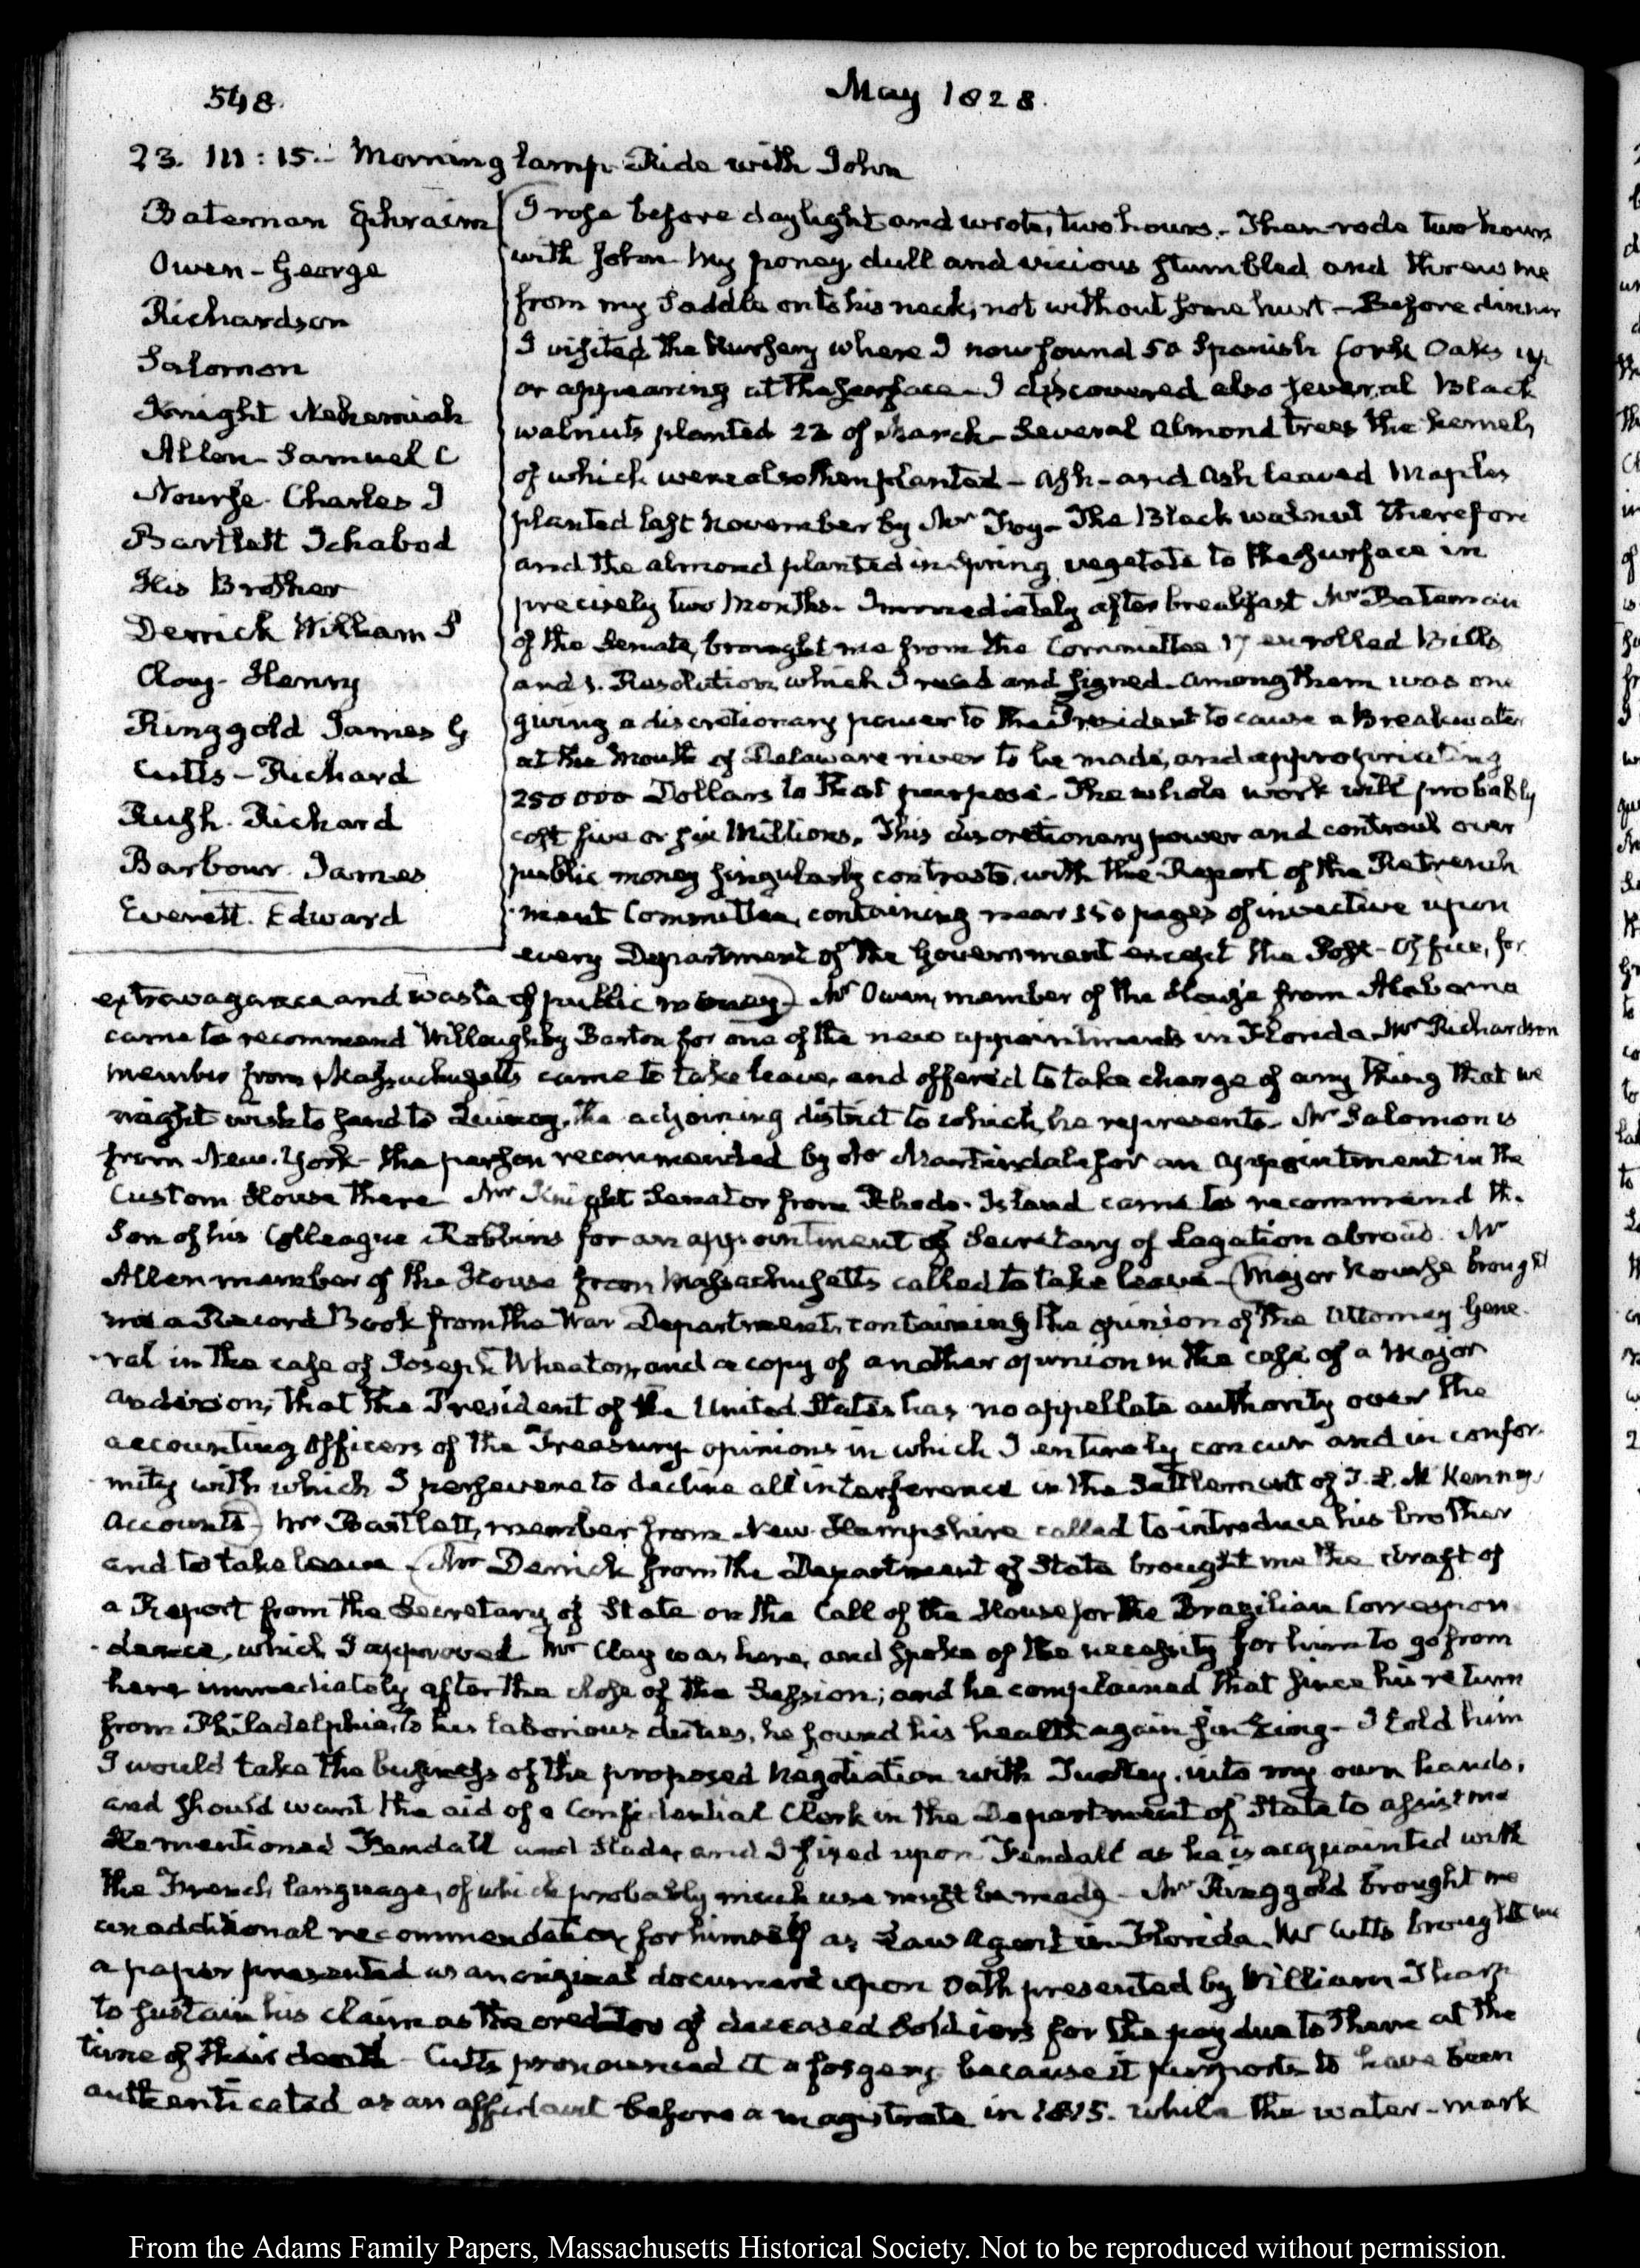 548.
May 1828.
23. III:15. Morning lamp. Ride with John
Bateman Ephraim
Owen - George
Richardson
Salomon
Knight Nehemiah
Allen - Samuel C
Nourse. Charles J
Bartlett Ichabod
His Brother
Derrick William S
Clay - Henry
Ringgold James G
Cutts - Richard
Rush. Richard
Barbour James
Everett. Edward
I rose before daylight and wrote, two hours. Then rode two hours
with John. My poney, dull and vicious stumbled and threw me
from my Saddle onto his neck, not without some hurt - Before dinner
I visited the Nursery where I now found 50 Spanish Cork Oaks up
or appearing at the surface - I discovered also several Black
walnuts planted 22 of March - Several almond trees the kernels
of which were also then planted - Ash - and Ash leaved Maples
planted last November by Mr Foy - The Black walnut therefore
and the almond planted in Spring vegetate to the surface in
precisely two Months. Immediately after breakfast Mr Bateman
of the Senate, brought me from the Committee 17 enrolled Bills
and 1. Resolution, which I read and signed. Among them was one
giving a discretionary power to the President to cause a Breakwater
at the Mouth of Delaware river to be made, and appropriating
250 000 Dollars to that purpose - The whole work will probably
cost five or six Millions. This discretionary power and controul over
public money singularly contrasts, with the Report of the Retrench
-ment Committee, containing near 150 pages of invective upon
every Department of the Government except the Post-Office, for
extravagance and waste of public money) - Mr Owen, member of the House from Alabama
came to recommend Willoughby Barton for one of the new appointments in Florida. Mr Richardson
member from Massachusetts came to take leave, and offered to take charge of any thing that we
might wish to send to Quincy, the adjoining district to which, he represents. Mr Salomon is
from New-York - the person recommended by Mr Martindale for an appointment in the
Custom House there Mr Knight Senator from Rhode-Island came to recommend the
Son of his Colleague Robbins for an appointment of Secretary of Legation abroad. Mr
Allen member of the House from Massachusetts called to take leave - (Major Nourse brought
me a Record Book from the War Department, containing the opinion of the Attorney Gene-
-ral in the case of Joseph Wheaton, and a copy of another opinion in the case of a Major
Anderson; that the President of the United States has no appellate authority over the
accounting Officers of the Treasury - opinions in which I entirely concur and in confor-
-mity with which I persevere to decline all interference in the Settlement of T. L. McKenney's
Accounts) - Mr Bartlett, member from New-Hampshire called to introduce his brother
and to take leave - (Mr Derrick from the Department of State brought me the draft of
a Report from the Secretary of State on the Call of the House for the Brazilian Correspon
-dence, which I approved Mr Clay was here, and spoke of the necessity for him to go from
here immediately after the close of the Session; and he complained that since his return
from Philadelphia, to his laborious duties, he found his health again sinking - I told him
I would take the business of the proposed Negotiation with Turkey, into my own hands,
and should want the aid of a Confidential Clerk in the Department of State to assist me
He mentioned Fendall and Slade, and I fixed upon Fendall as he is acquainted with
the French language, of which probably much use might be made) - Mr Ringgold brought me
an additional recommendation for himself as Law Agent in Florida. Mr Cutts brought me
a paper presented as an original document upon Oath presented by William Tharp
to sustain his claim as the creditor of deceased Soldiers for the pay due to them at the
time of their death - Cutts pronounced it a forgery because it purports to have been
authenticated as an affidavit before a magistrate in 1815. while the water-mark
From the Adams Family Papers, Massachusetts Historical Society. Not to be reproduced without permission.